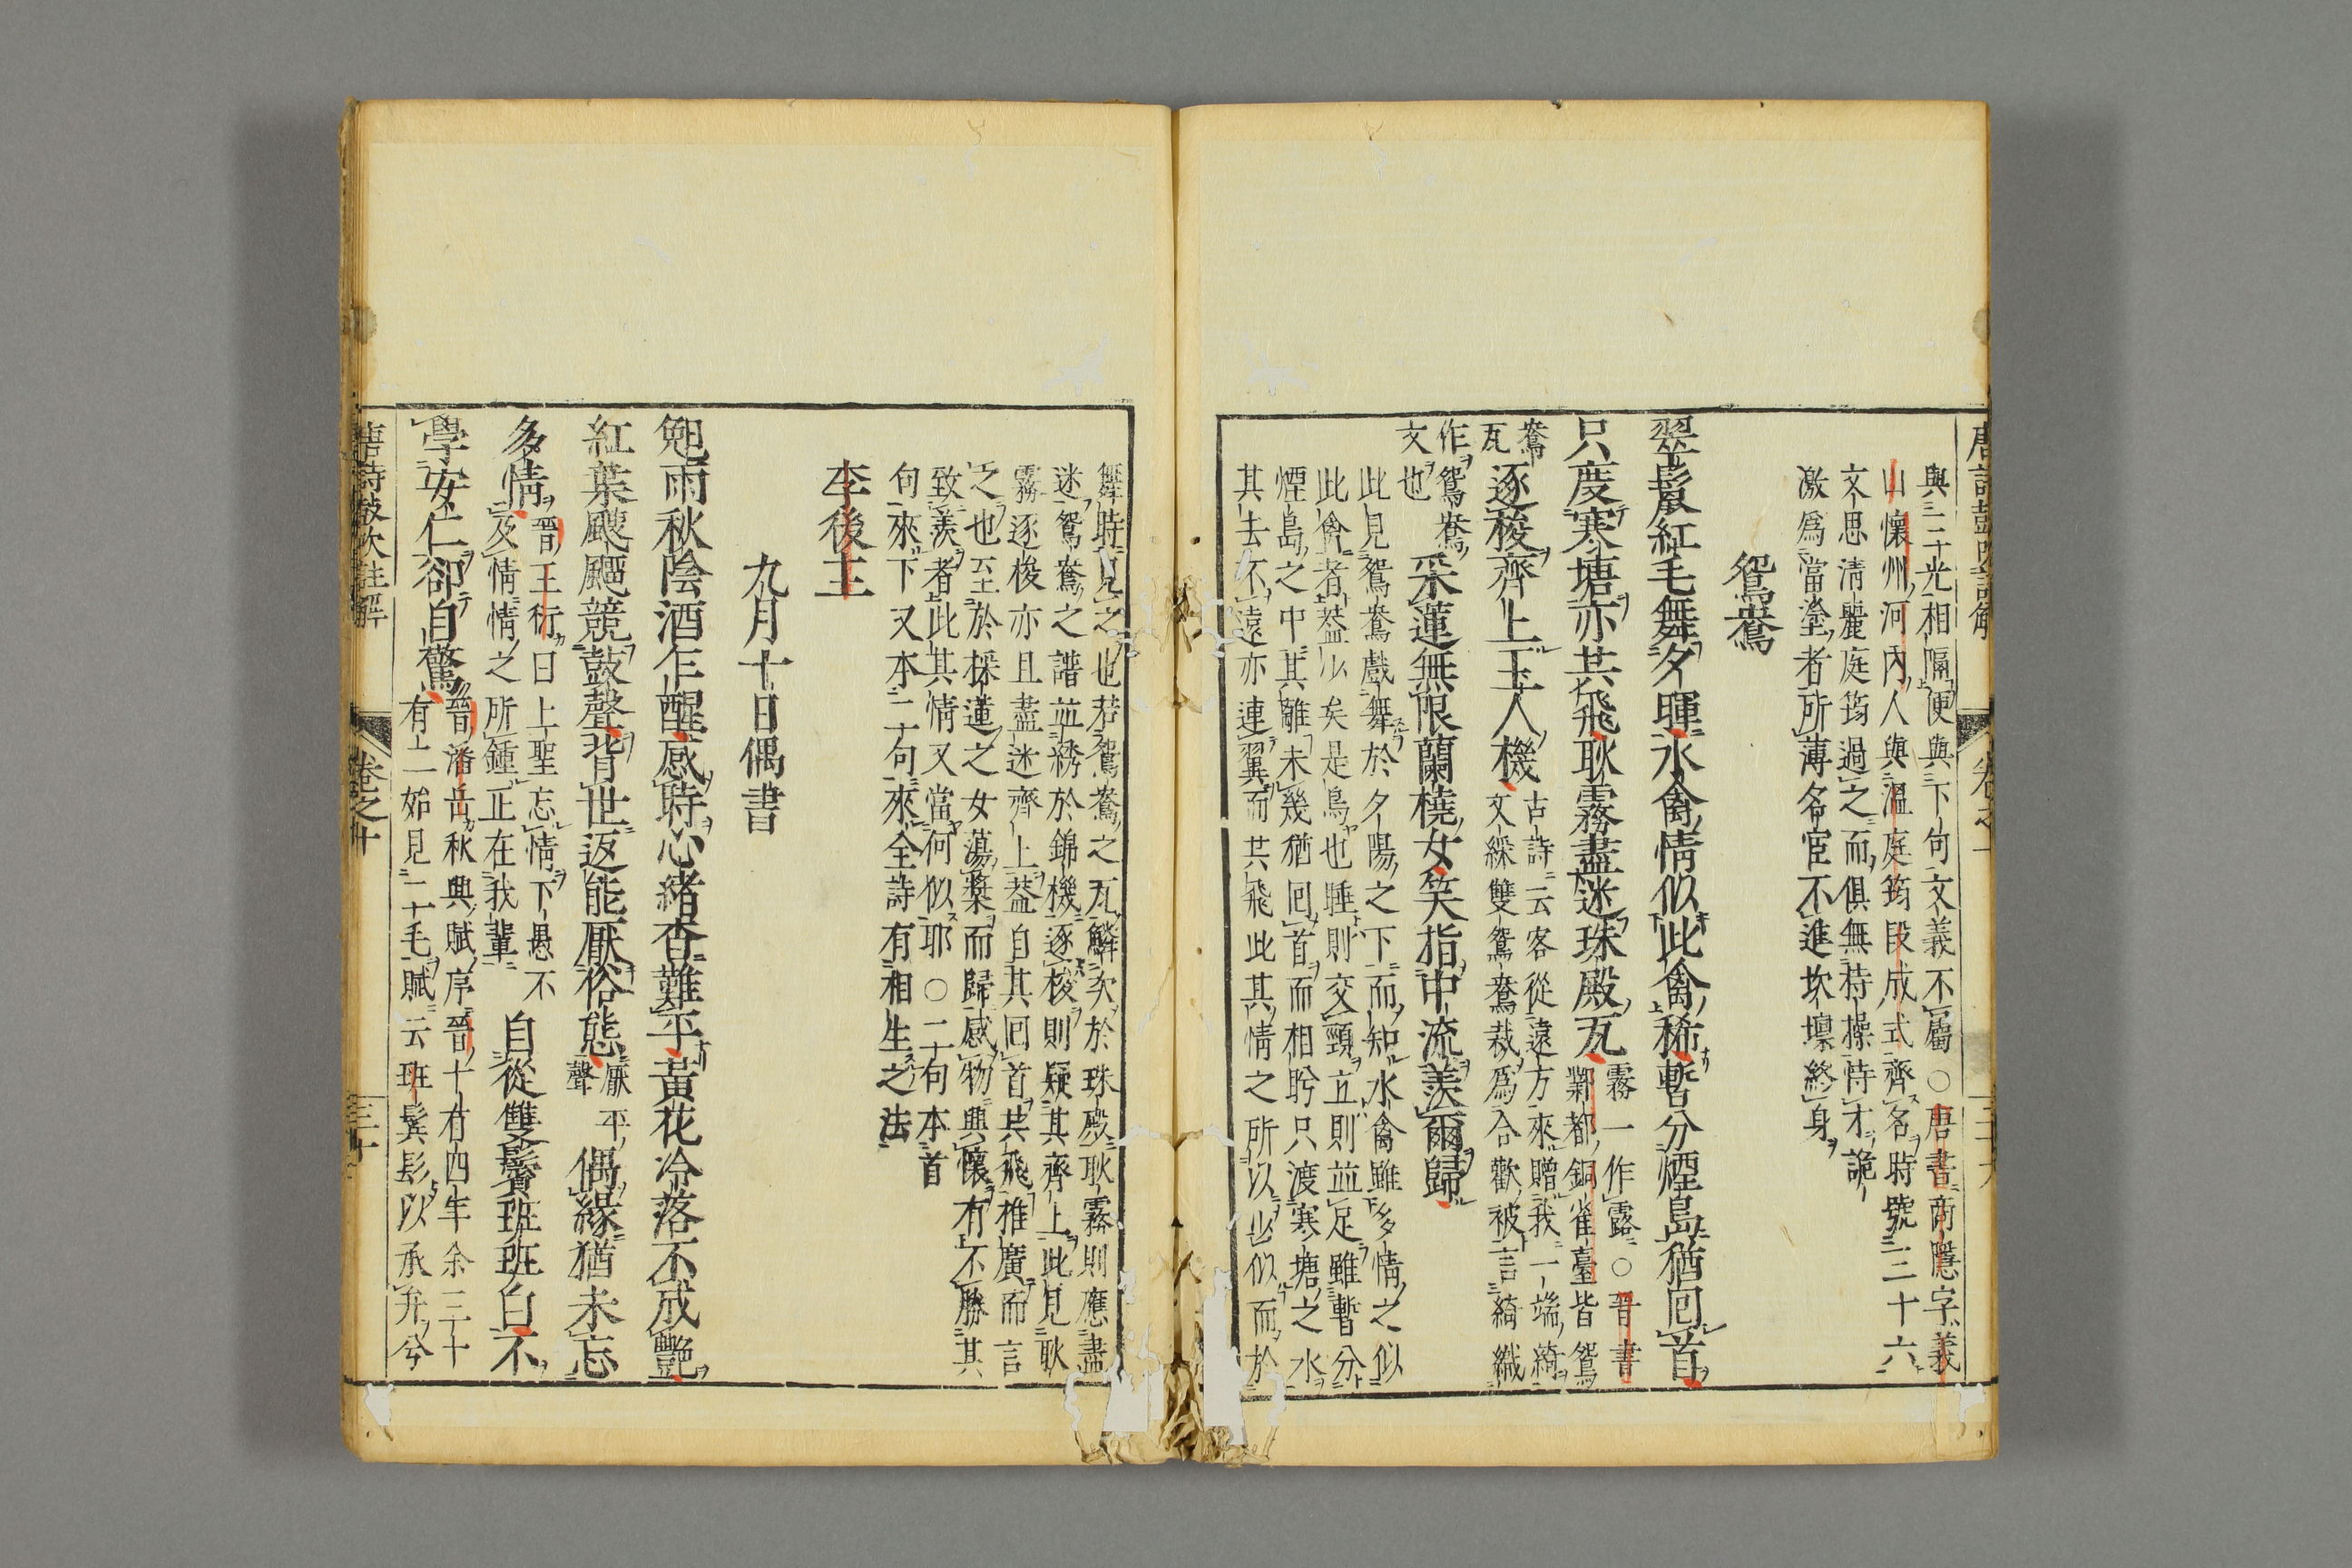 與三光相隔便與下句文義不屬○唐書商隱字義
山懷州河內人與溫庭筠段成式齊名時號三十六
文思清麗庭筠過之而俱無持操恃才詭
激爲當塗者所薄名宦不進坎壈終身
鴛鴦
翠鬣紅毛舞夕暉水禽情似此禽稀暫分煙島猶囘首
只度寒塘亦共飛耿霧盡迷珠殿瓦
霧一作露○晉書
鄴都銅雀臺皆鴛
鴦
瓦
逐梭齊上玉人機
古詩云客從遠方來贈我一端綺
文綵雙鴛鴦裁爲合歡被言綺織
作鴛鴦
文也
采蓮無限蘭橈女笑指中流羨爾歸
此見鴛鴦戲舞於夕陽之下而知水禽雖多情之似
此禽者葢少矣是鳥也睡則交頸立則並足雖暫分
煙島之中其離未幾猶囘首而相盻只渡寒塘之水
其去不遠亦連翼而共飛此其情之所以少似而於
舞時見之也若鴛鴦之瓦鱗次於珠殿耿霧則應盡
迷鴛鴦之譜並綉於錦機逐梭則疑其齊上此見耿
霧逐梭亦且盡迷齊上葢自其囘首共飛推廣而言
之也至於採蓮之女蕩槳而歸感物興懷有不勝其
致羨者此其情又當何似耶○二句本首
句來下又本二句來全詩有相生之法
李後主
九月十日偶書
鳧雨秋陰酒乍醒感時心緒杳難平黃花冷落不成艷
紅葉颼飀競鼓聲背世返能厭俗態
厭平
聲
偶緣猶未忘
多情
晉王衍曰上聖忘情下愚不
及情情之所鍾正在我輩
自從雙鬢班班白不
學安仁卻自驚
晉潘岳秋興賦序晉十有四年余三十
有二始見二毛賦云班鬂髟以承弁兮
唐詩鼓吹註解
卷之十
三十